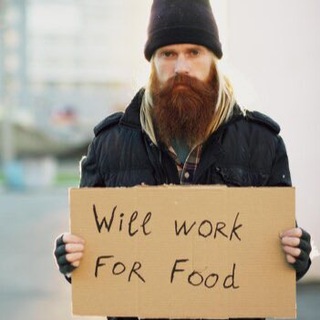 Will work
For Food